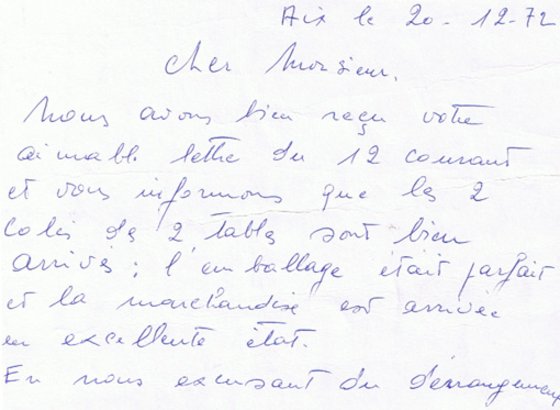 Aix le 20-12-72
Cher Monsieur.
Nous avons bien reçu votre
aimable lettre du 12 courant
et vous informons que les 2
colis des 2 tables sont bien
arrivés ; l'emballage était parfait
et la marchandise est arrivée
en excellente état.
En nous excusant du dérangement